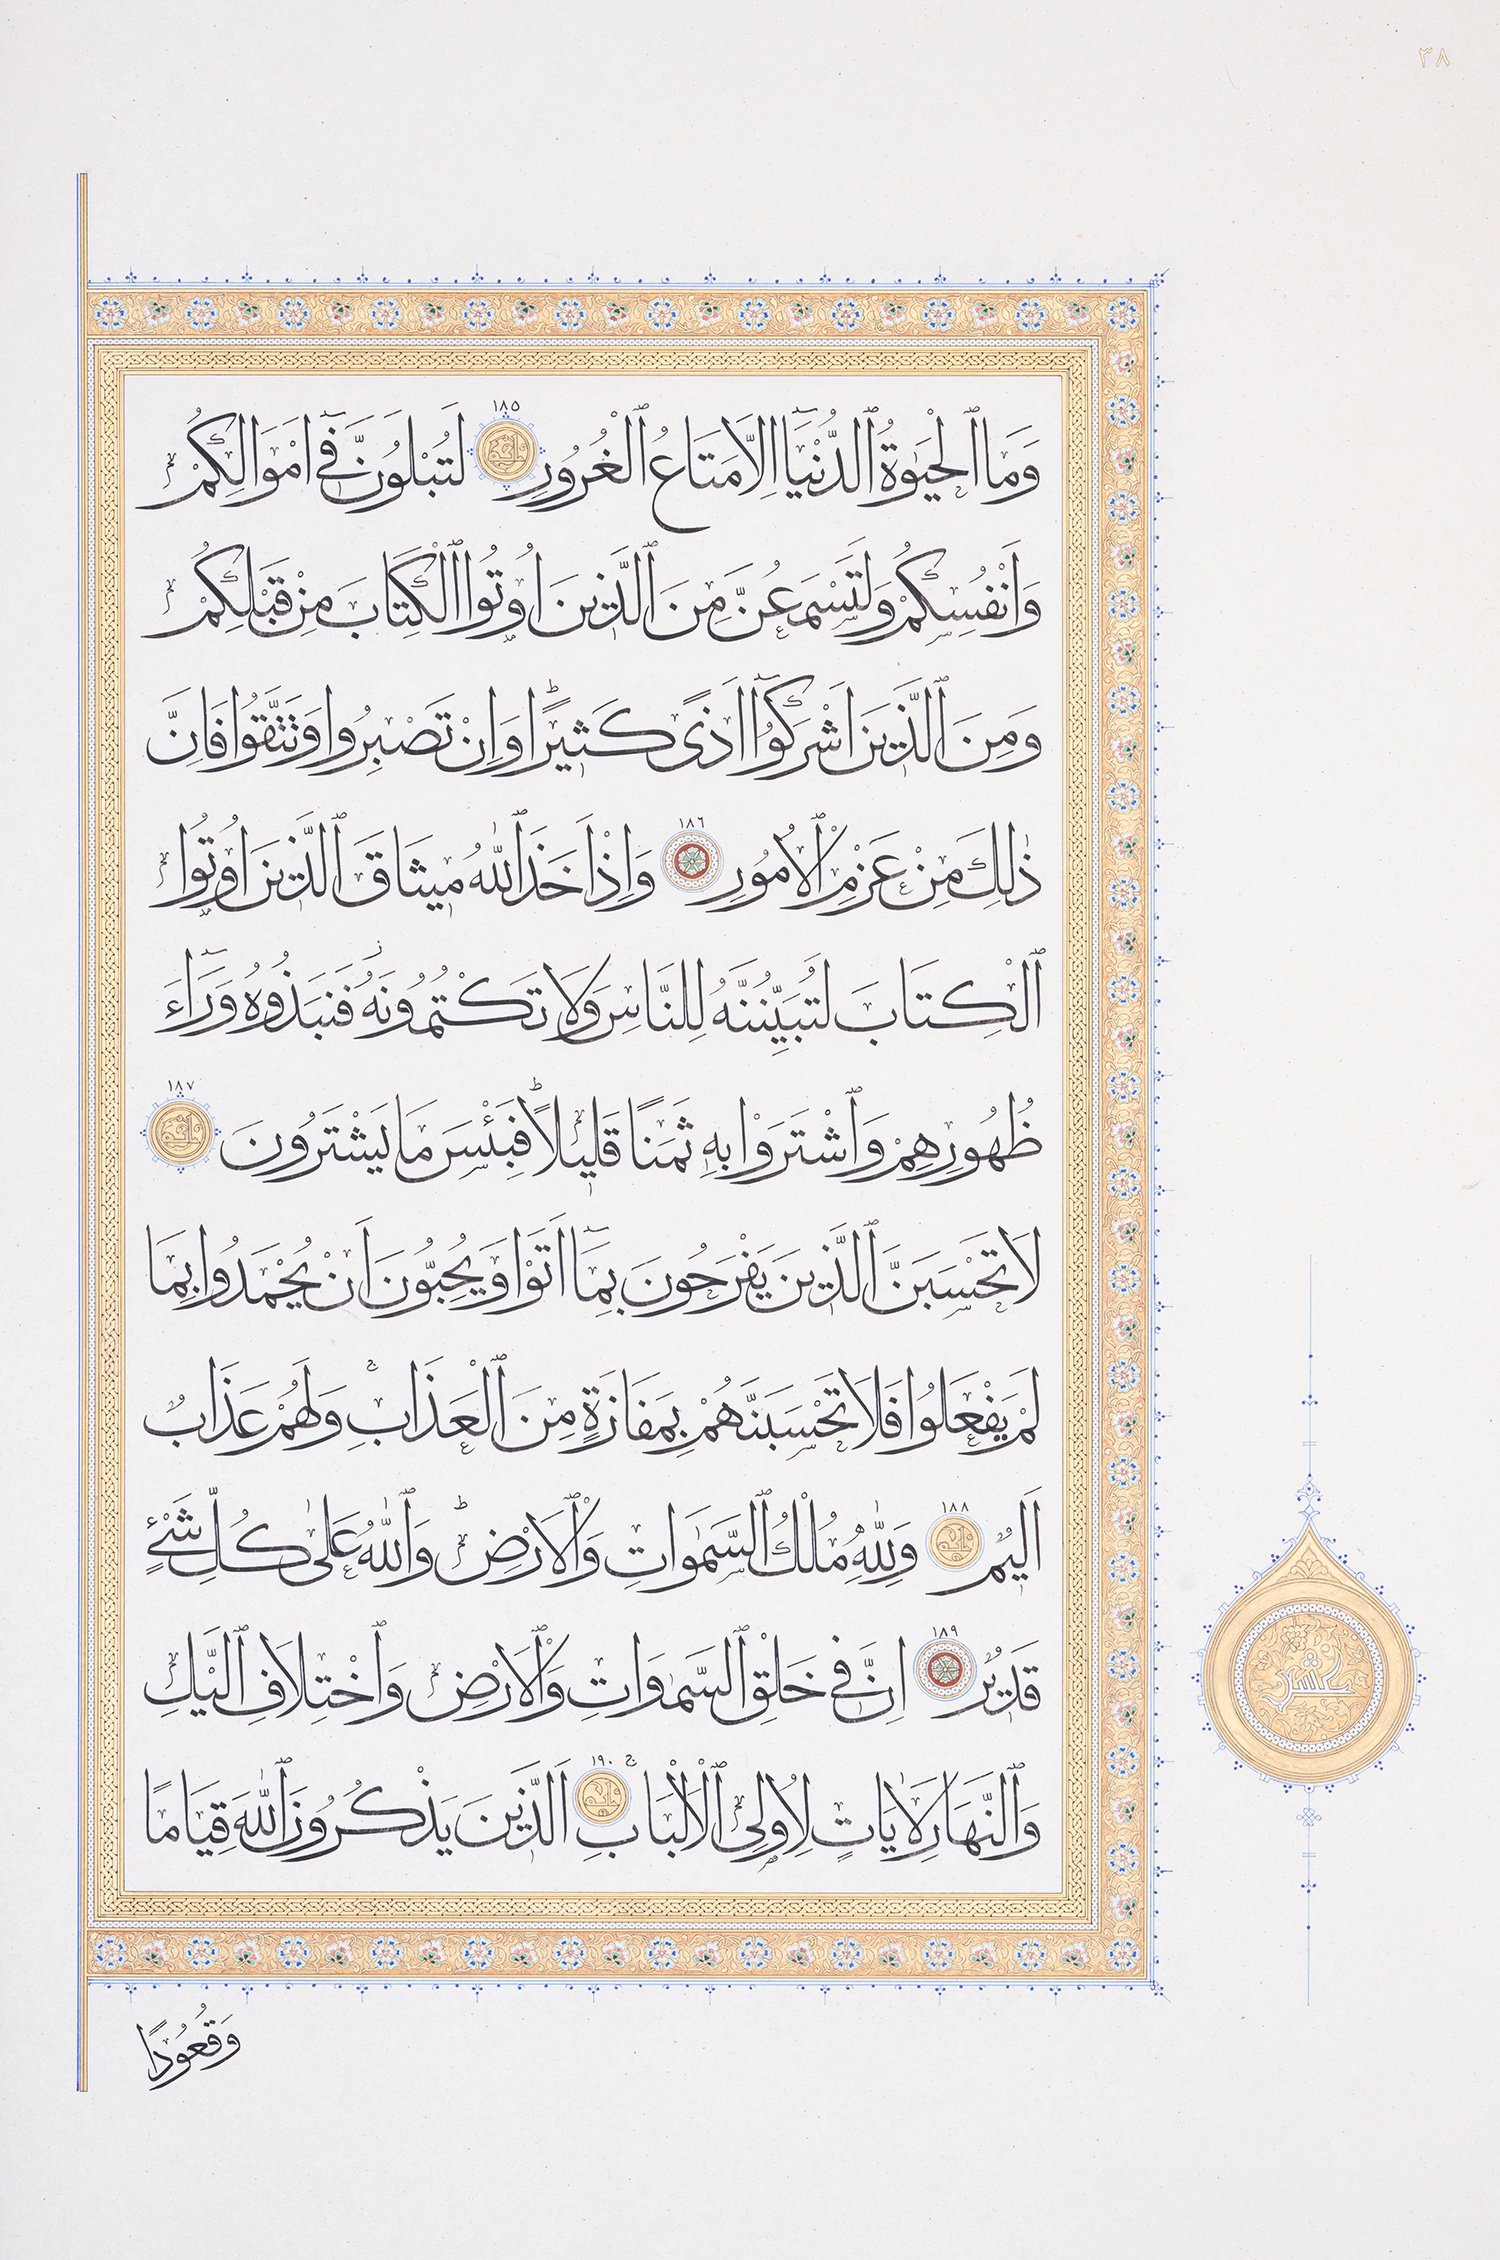 ٣٨
وَمَا ٱلْحَيٰوةُ ٱلدُّنْيَٓا اِلَّا مَتَاعُ ٱلْغُرُورِ ١٨٥ لَتُبْلَوُنَّ فٓى اَمْوَالِكُمْ
وَاَنْفُسِكُمْ وَلَتَسْمَعُنَّ مِنَ ٱلَّذٖينَ اُوتُوا ٱلْكِتَابَ مِنْ قَبْلِكُمْ
وَمِنَ ٱلَّذٖينَ اَشْرَكُٓوا اَذًى كَثٖيرًاؕ وَاِنْ تَصْبِرُوا وَتَتَّقُوا فَاِنَّ
ذٰلِكَ مِنْ عَزْمِ ٱلْاُمُورِ ١٨٦ وَاِذْ اَخَذَ ٱللّٰهُ مٖيثَاقَ ٱلَّذٖينَ اُوتُوا
ٱلْكِتَابَ لَتُبَيِّنُنَّهُ لِلنَّاسِ وَلَا تَكْتُمُونَهُؗ فَنَبَذُوهُ وَرَٓاءَ
ظُهُورِهِمْ وَٱشْتَرَوْا بِهٖ ثَمَنًا قَلٖيلًاؕ فَبِئْسَ مَا يَشْتَرُونَ ١٨٧
لَا تَحْسَبَنَّ ٱلَّذٖينَ يَفْرَحُونَ بِمَٓا اَتَوْا وَيُحِبُّونَ اَنْ يُحْمَدُوا بِمَا
لَمْ يَفْعَلُوا فَلَا تَحْسَبَنَّهُمْ بِمَفَازَةٍ مِنَ ٱلْعَذَابِۚ وَلَهُمْ عَذَابٌ
اَلٖيمٌ ١٨٨ وَلِلّٰهِ مُلْكُ ٱلسَّمٰوَاتِ وَٱلْاَرْضِؕ وَٱللّٰهُ عَلٰى كُلِّ شَىْءٍ
قَدٖيرٌ ١٨٩ اِنَّ فٖى خَلْقِ ٱلسَّمٰوَاتِ وَٱلْاَرْضِ وَٱخْتِلَافِ ٱلَّيْلِ
وَٱلنَّهَارِ لَاٰيَاتٍ لِاُولِى ٱلْاَلْبَابِۚ ١٩٠ اَلَّذٖينَ يَذْكُرُونَ ٱللّٰهَ قِيَامًا
عشر
وَقُعُودًا